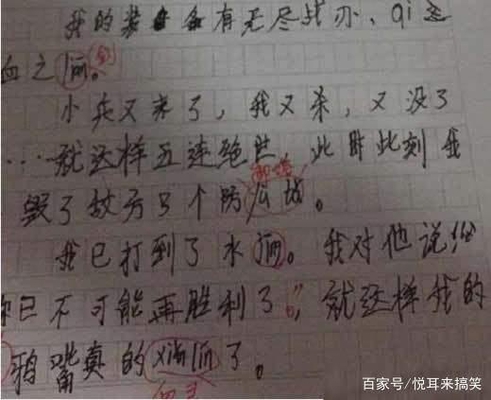 我的装备有无尽战刃、qi
血之
小兵又来了，我又杀，又没了
……就这样五连绝世，此时此刻我
毁了敌方3个防
我已打到了水。我对他说
已不可能再胜利了，就这样我的
鸦嘴真的了。
百家号/悦耳来搞笑